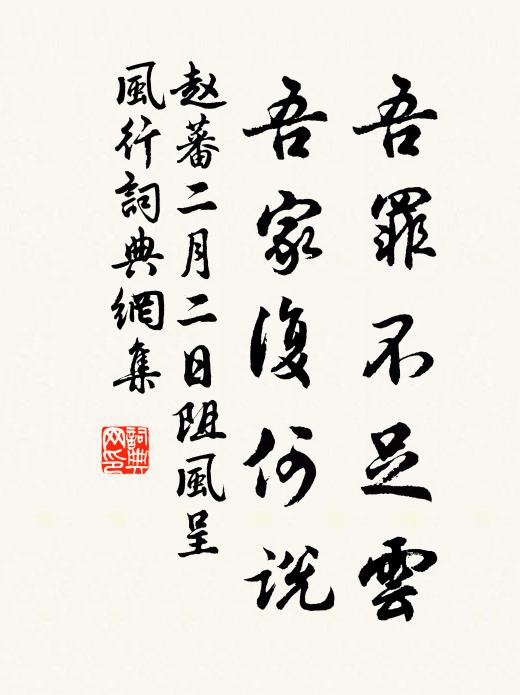 吾罪不足雲
吾家復何説
赵蕃二月二日阻風呈
風行詞典網集
詞典网印